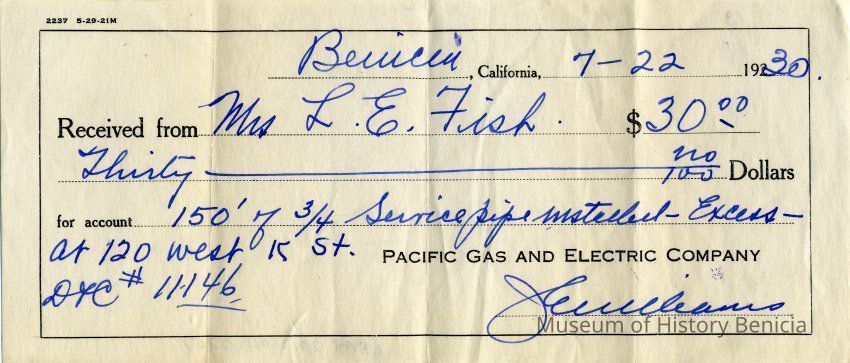 2237 5-29-21M
Benicia, California, 7-22 19230.
Received from Mrs L. E. Fish. $30.00
Thirty no/100 Dollars
for account 150' of 3/4 Service pipe installed - Excess -
at 120 West K St. PACIFIC GAS AND ELECTRIC COMPANY
# 11146
Museum of History Benicia